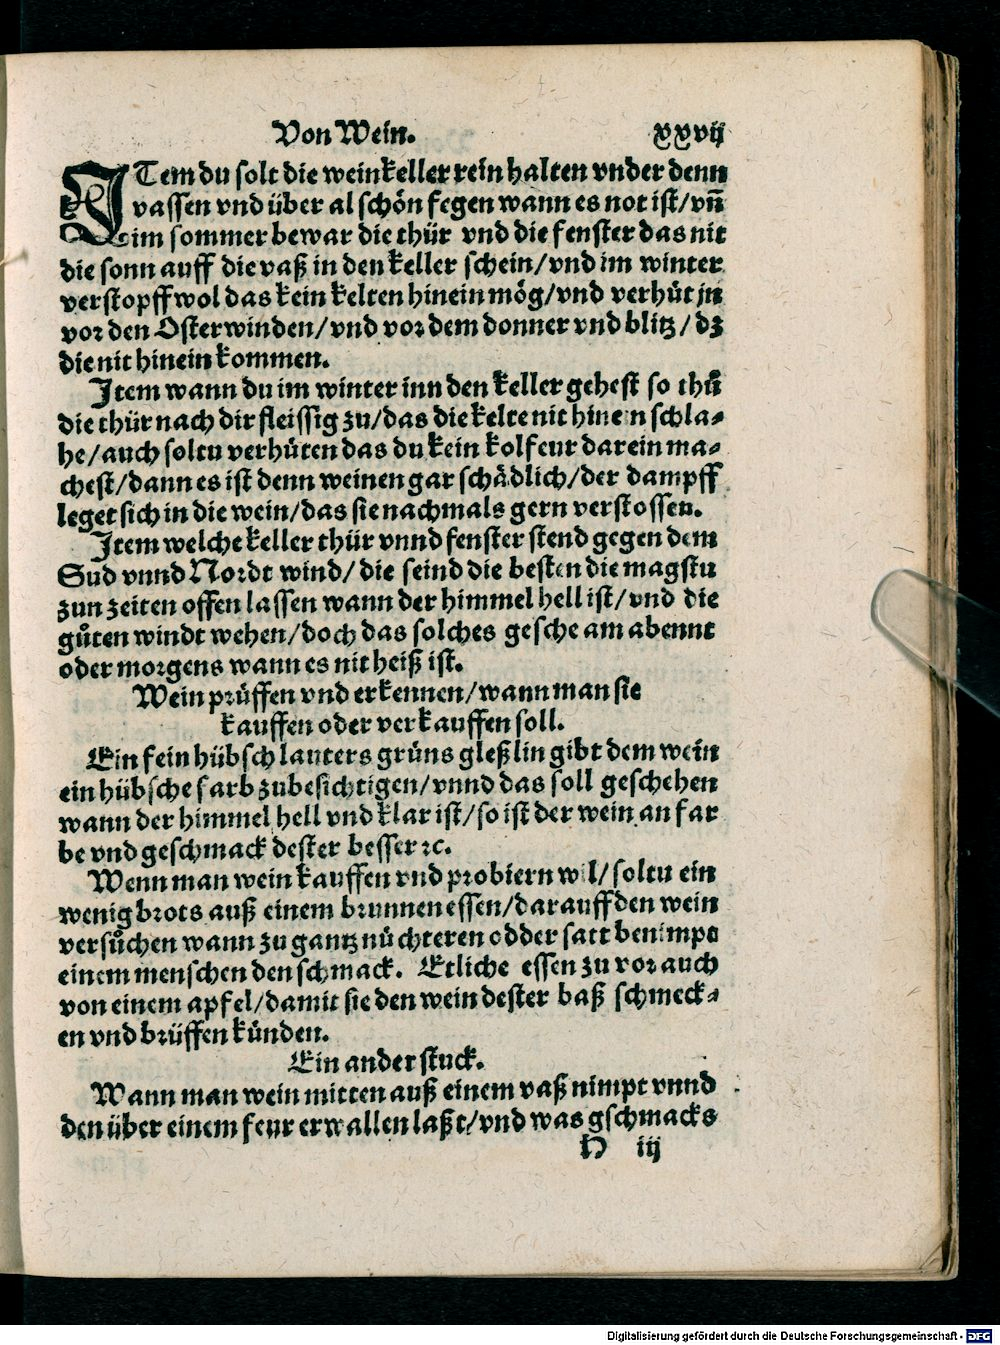 Von Wein. xxvij
ITem du solt die weinkeller rein halten vnder denn
vassen vnd über al schön fegen wann es not ist/vn̄
im sommer bewar die thür vnd die fenster das nit
die sonn auff die vaß in den keller schein/vnd im winter
verstopff wol das kein kelten hinein mög/vnd verhüt jn
vor den Osterwinden/vnd vor dem donner vnd blitz/dz
die nit hinein kommen.
Item wann du im winter inn den keller gehest so thů
die thür nach dir fleissig zu/das die kelte nit hinein schla-
he/auch soltu verhüten das du kein kolfeur darein ma-
chest/dann es ist denn weinen gar schädlich/der dampff
leget sich in die wein/das sie nachmals gern verstossen.
Item welche keller thür vnnd fenster stend gegen dem
Sud vnnd Nordt wind/die seind die besten die magstu
zun zeiten offen lassen wann der himmel hell ist/vnd die
gůten windt wehen/doch das solches gesche am abennt
oder morgens wann es nit heiß ist.
Wein prüffen vnd erkennen/wann man sie
kauffen oder verkauffen soll.
Ein fein hübsch lauters grüns gleßlin gibt dem wein
ein hübsche farb zubesichtigen/vnnd das soll geschehen
wann der himmel hell vnd klar ist/so ist der wein an far
be vnd geschmack dester besser ꝛc.
Wenn man wein kauffen vnd probiern wil/soltu ein
wenig brots auß einem brunnen essen/darauff den wein
versůchen wann zu gantz nüchteren odder satt benimpt
einem menschen den schmack. Etliche essen zu vor auch
von einem apfel/damit sie den wein dester baß schmeck-
en vnd brüffen künden.
Ein ander stuck.
Wann man wein mitten auß einem vaß nimpt vnnd
den über einem feur erwallen laßt/vnd was gschmacks
H iij
Digitalisierung gefördert durch die Deutsche Forschungsgemeinschaft - DFG